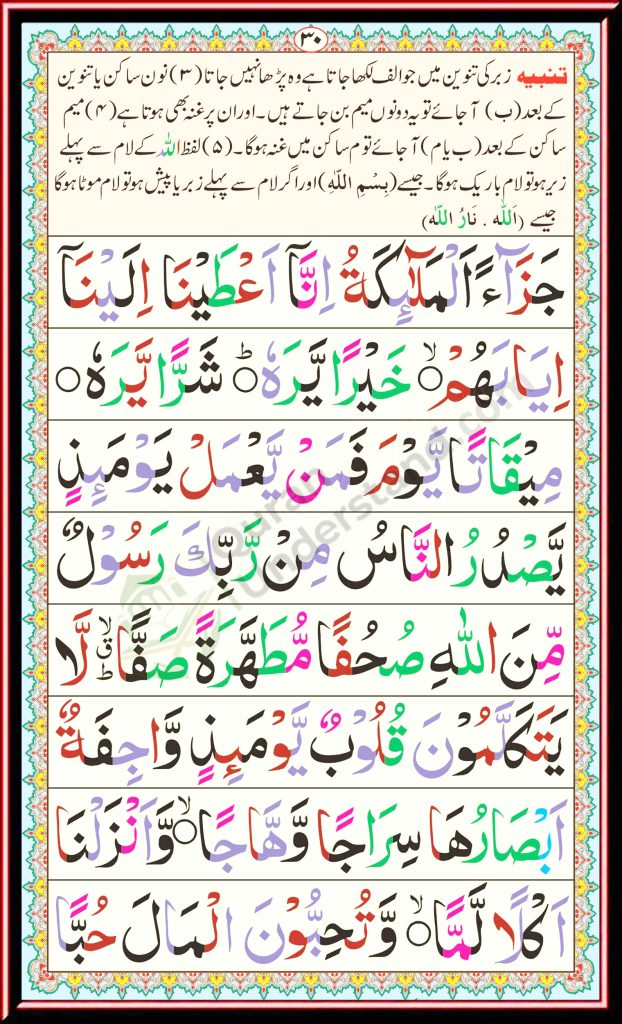 ٣٠
تنبیه زبر کی تنوین میں جو الف لکھا جاتا ہے وہ پڑھا نہیں جاتا (۳) نون ساکن یا تنوین
کے بعد (ب) آ جائے تو یہ دونوں میم بن جاتے ہیں۔ اور ان پر غنہ بھی ہوتا ہے (۴) میم
ساکن کے بعد (ب یا م) آ جائے تو م ساکن میں غنہ ہوگا۔ (۵) لفظ اللہ کے لام سے پہلے
زیر ہو تو لام باریک ہوگا۔ جیسے (بِسْمِ اللّٰهِ) اور اگر لام سے پہلے زبر یا پیش ہو تو لام موٹا ہوگا
جیسے (اَللّٰه . نَارُ اللّٰه)
جَزَآءً اَلْمَلٰٓئِكَةُ اِنَّآ اَعْطَيْنَا اِلَيْنَآ
اِيَابَهُمْ ۙ خَيْرًا يَّرَهٗ ؕ شَرًّا يَّرَهٗ ○
مِيْقَاتًا يَّوْمَ فَمَنْ يَّعْمَلْ يَوْمَئِذٍ
يَّصْدُرُ النَّاسُ مِنْ رَّبِّكَ رَسُوْلٌ
مِّنَ اللّٰهِ صُحُفًا مُّطَهَّرَةً صَفًّا ۙ لَّا
يَتَكَلَّمُوْنَ قُلُوْبٌ يَّوْمَئِذٍ وَّاجِفَةٌ
اَبْصَارُهَا سِرَاجًا وَّهَّاجًا ۙ وَّاَنْزَلْنَا
اَكْلًا لَّمًّا ۙ وَّتُحِبُّوْنَ الْمَالَ حُبًّا
Quran Understand.com